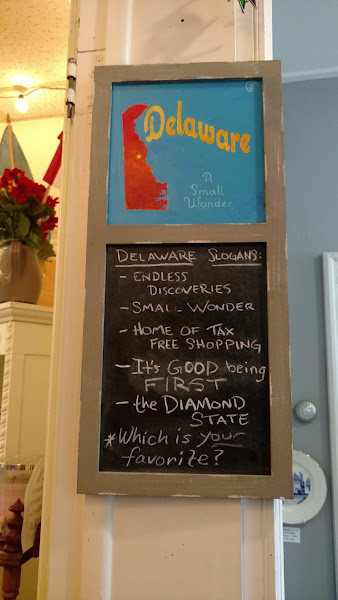 Delaware
A
Small
Wonder
DELAWARE SLOGANS:
- ENDLESS
DISCOVERIES
- SMALL WONDER
- HOME OF TAX
FREE SHOPPING
- It's GOOD being
FIRST
- the DIAMOND
STATE
* Which is your
favorite?